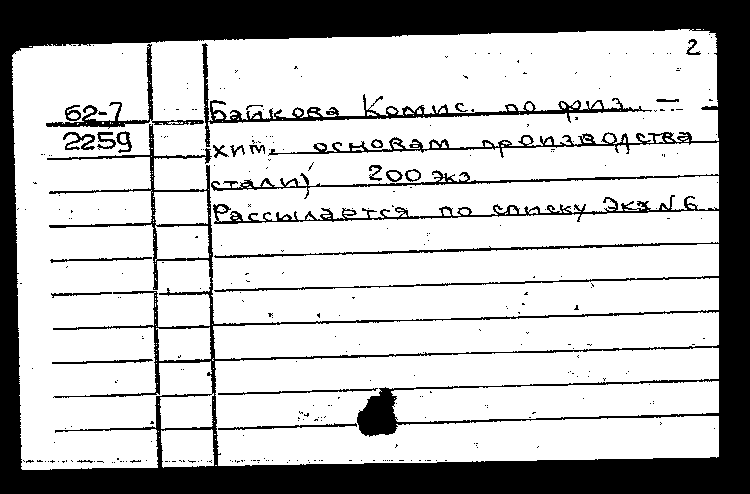 2
62-7 Байкова Комис. по физ. —
2259 хим. основам производства
стали). 200 экз.
Рассылается по списку. Экз N 6.